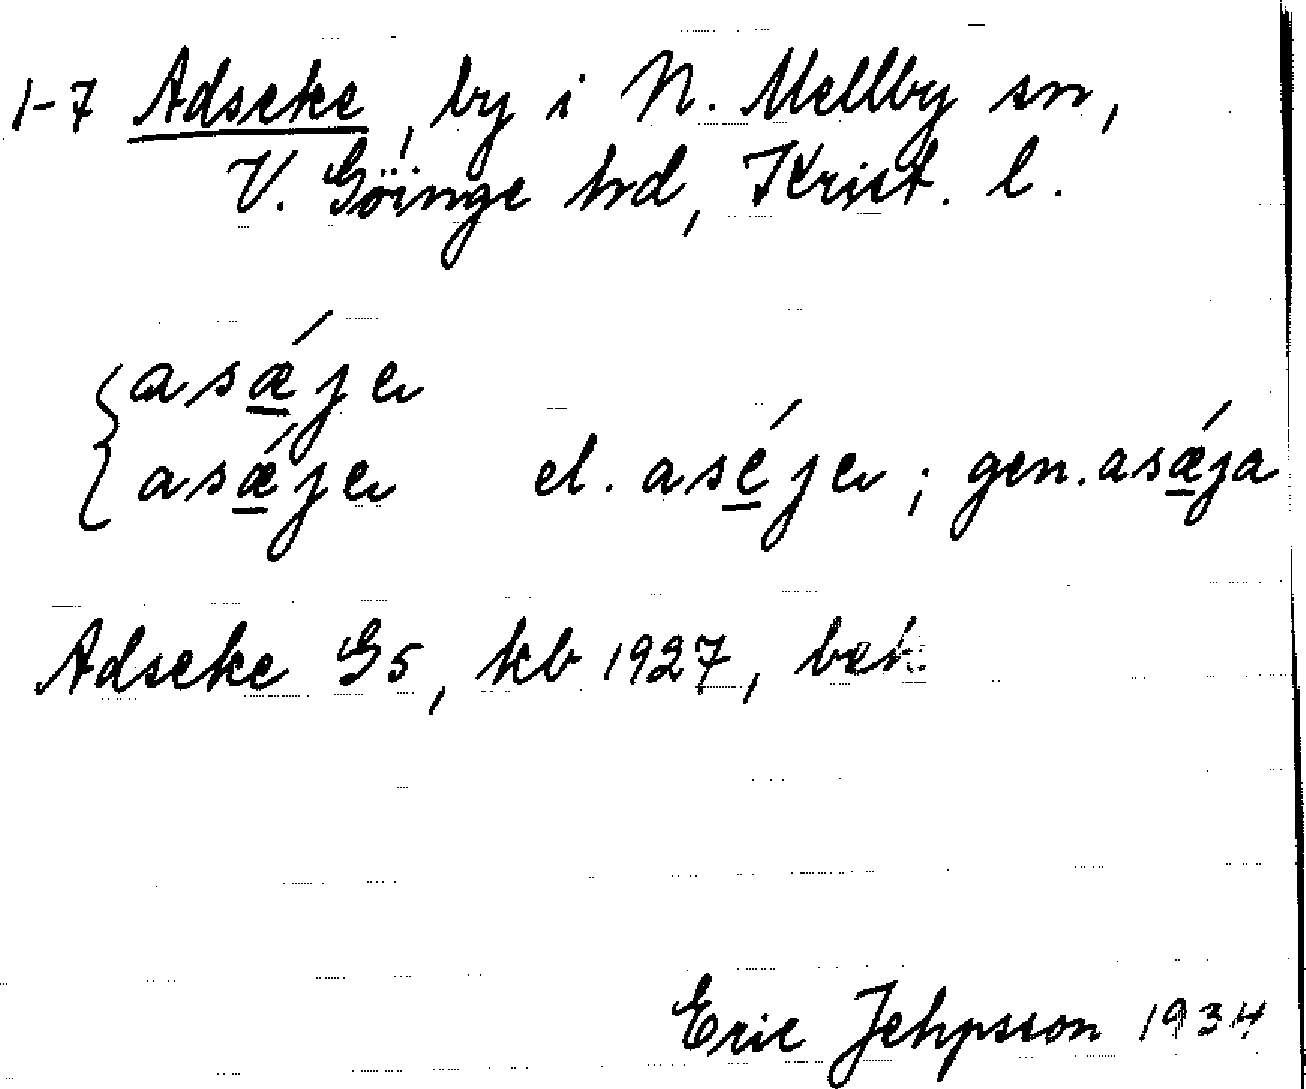 1-7 Adseke, by i N. Mellby sn,
V. Göinge hd, Krist. l.
asǽ̱je
asǽ̱je el. asé̱je ; gen. asǽ̱ja
Adseke G5, kb 1927, bek.
Eric Jehpsson 1934